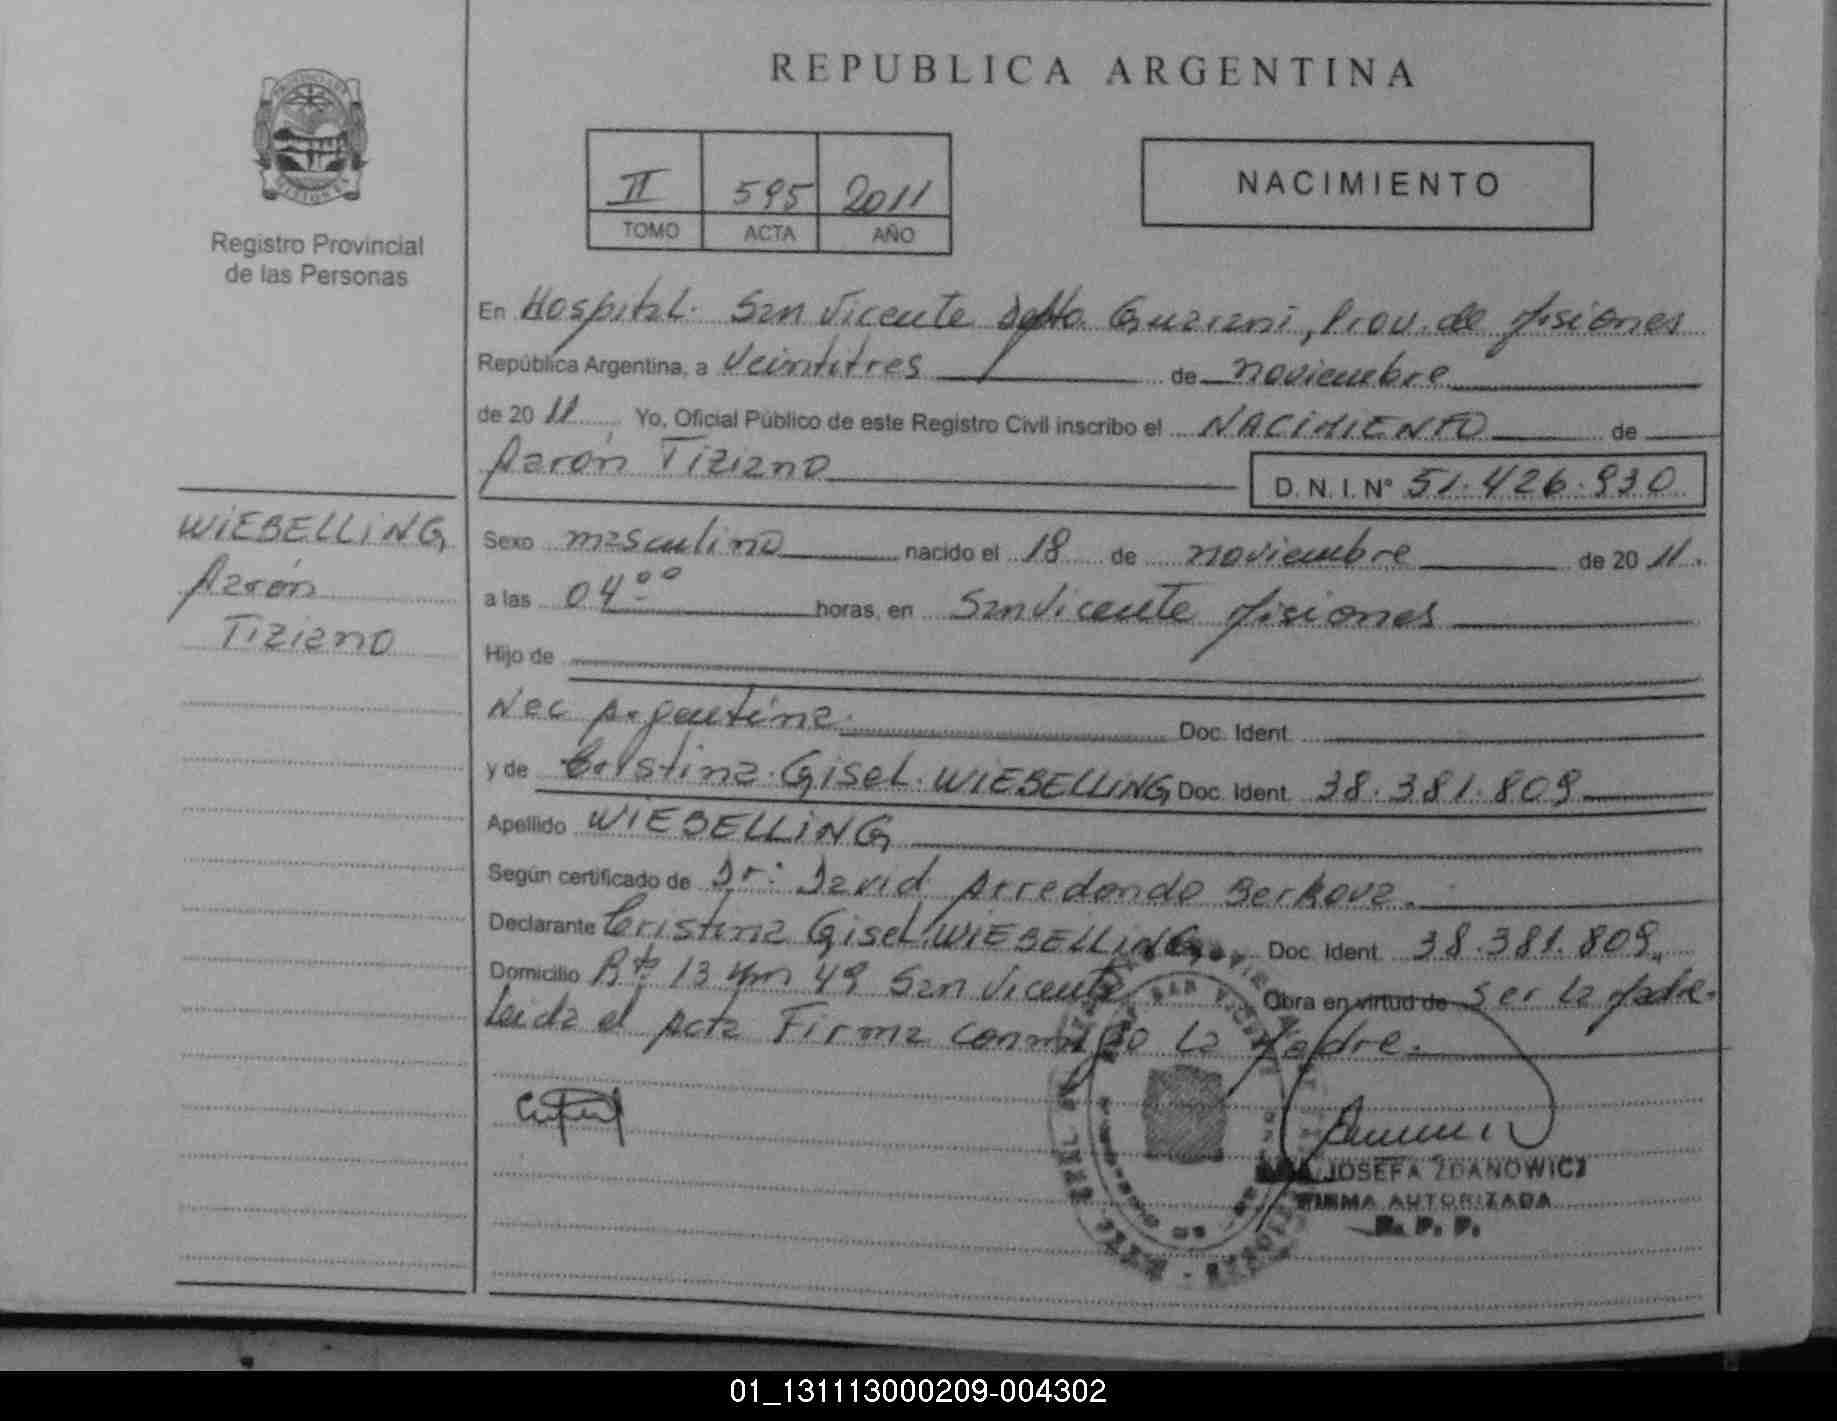 REPUBLICA ARGENTINA
II 595 2011
TOMO ACTA AÑO
NACIMIENTO
Registro Provincial
de las Personas
WIEBELLING
Aarón
Tiziano
En Hospital. San Vicente Dpto. Guaraní, Prov. de Misiones
República Argentina, a Veintitres de noviembre
de 20 11 Yo, Oficial Público de este Registro Civil inscribo el NACIMIENTO de
Aarón Tiziano D. N. I. N° 51.426.930
Sexo masculino nacido el 18 de noviembre de 20 11.
a las 04°° horas, en San Vicente Misiones
Hijo de
Nac Argentina. Doc. Ident.
y de Cristina Gisel. WIEBELLING Doc. Ident. 38.381.809
Apellido WIEBELLING
Según certificado de Dr: David Arredondo Berkova.
Declarante Cristina Gisel WIEBELLING Doc. Ident. 38.381.809
Domicilio Rta 13 Km 49 San Vicente Obra en virtud de ser la Madre.
Leida el Acta Firma conmigo la Madre.
JOSEFA ZDANOWICZ
FIRMA AUTORIZADA
R. P. P.
01_131113000209-004302